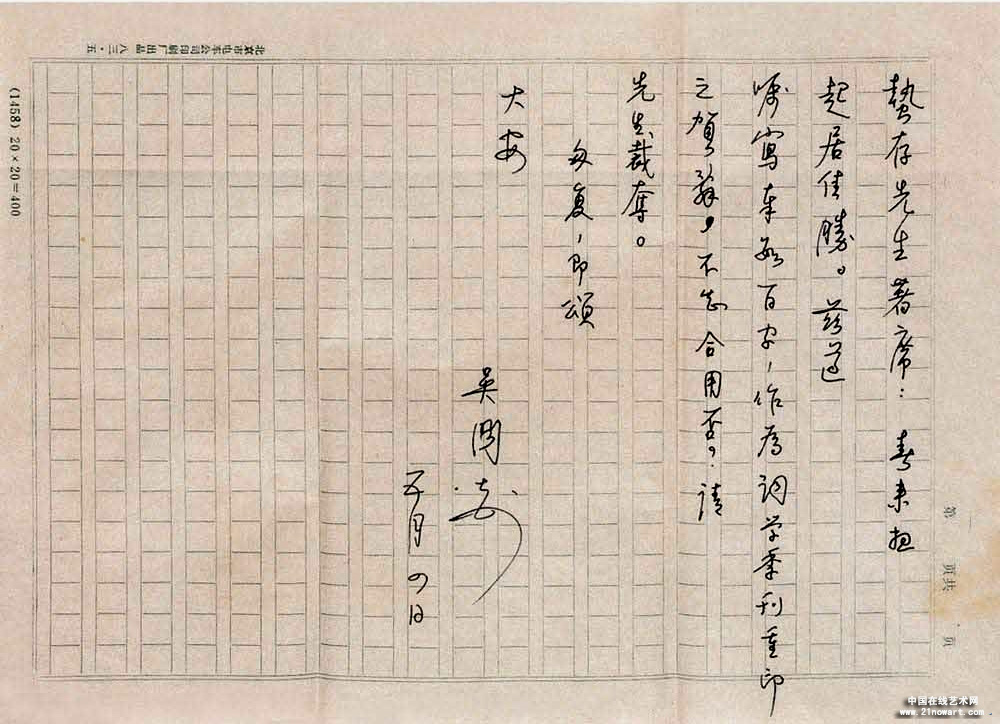 蛰存先生著席：春来想
起居佳勝。兹遵
嘱寫奉数百字，作为词学季刊重印
之贺辞，不知合用否，请
先生裁奪。
匆复，即颂
大安
吴闻
五月四日
第 页共 页
北京市电车公司印刷厂出品 八三·五
(1458) 20×20=400
中国在线艺术网
www.21nowart.com